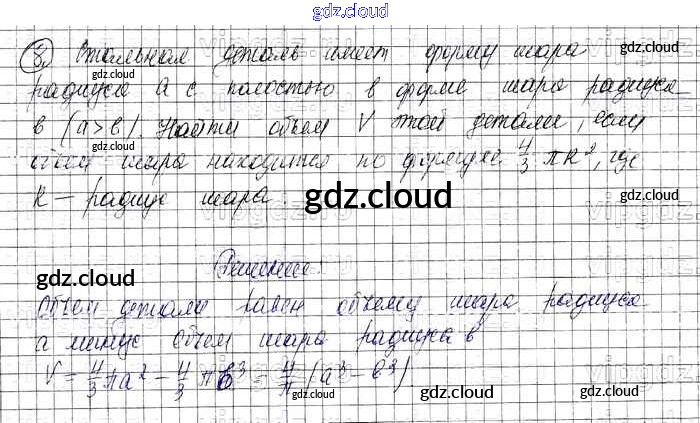 gdz.cloud
8. Стальная деталь имеет форму шара
радиуса а с полостью в форме шара радиуса
в (a>в). Найти объем V этой детали, если
объем шара находится по формуле 4/3 πR³, где
R – радиус шара.
gdz.cloud
Решение
Объем детали равен объему шара радиуса
а минус объем шара радиуса в
V = 4/3 πa² - 4/3 πв³ = 4/π (a³ - в³)
gdz.cloud
gdz.cloud